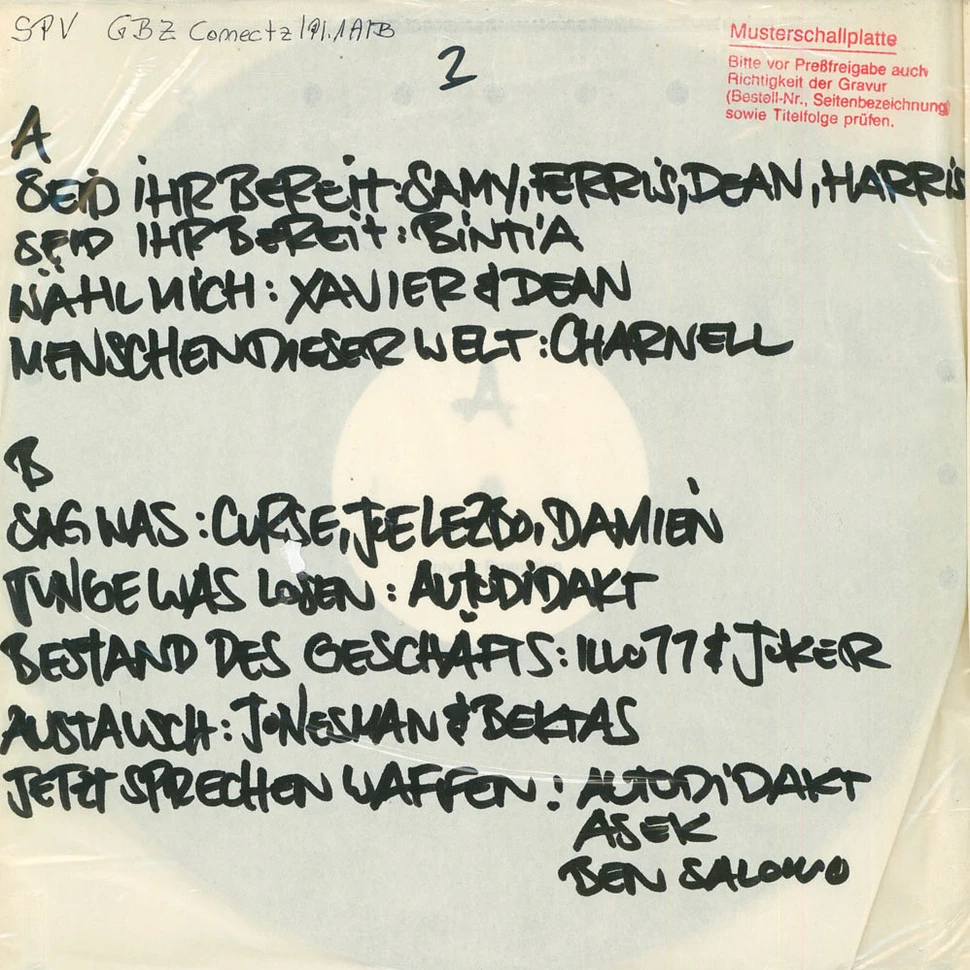 SPV GBZ Comectz/91.1A/B
2
Musterschallplatte
Bitte vor Preßfreigabe auch
Richtigkeit der Gravur
(Bestell-Nr., Seitenbezeichnung)
sowie Titelfolge prüfen.
A
SEID IHR BEREIT: SAMY, FERRIS, DEAN, HARRIS
SEID IHR BEREIT: BINTIA
WÄHL MICH: XAVIER & DEAN
MENSCHEN DIESER WELT: CHARNELL
A
B
SAG WAS: CURSE, JOELEZBO, DAMIEN
JUNGE WAS LOSEN: AUTODIDAKT
BESTAND DES GESCHÄFTS: ILLO 77 & JOKER
AUSTAUSCH: JONESMAN & BEKTAS
JETZT SPRECHEN WAFFEN: AUTODIDAKT
ASEK
BEN SALOMO